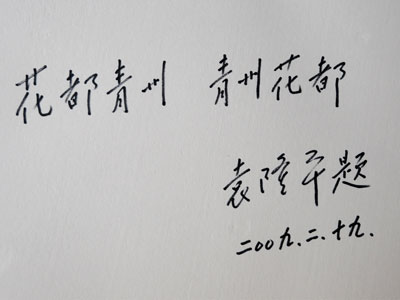 花都青州 青州花都
袁隆平题
二00九.二.十九.